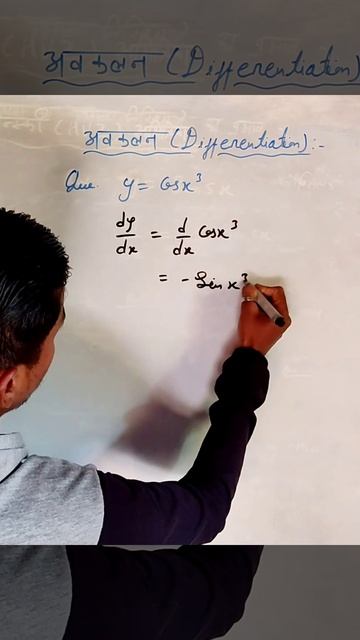 अवकलन (Differentiation)
अवकलन (Differentiation):-
Que. y = cosx³
dy/dx = d/dx cosx³
= - Sin x³